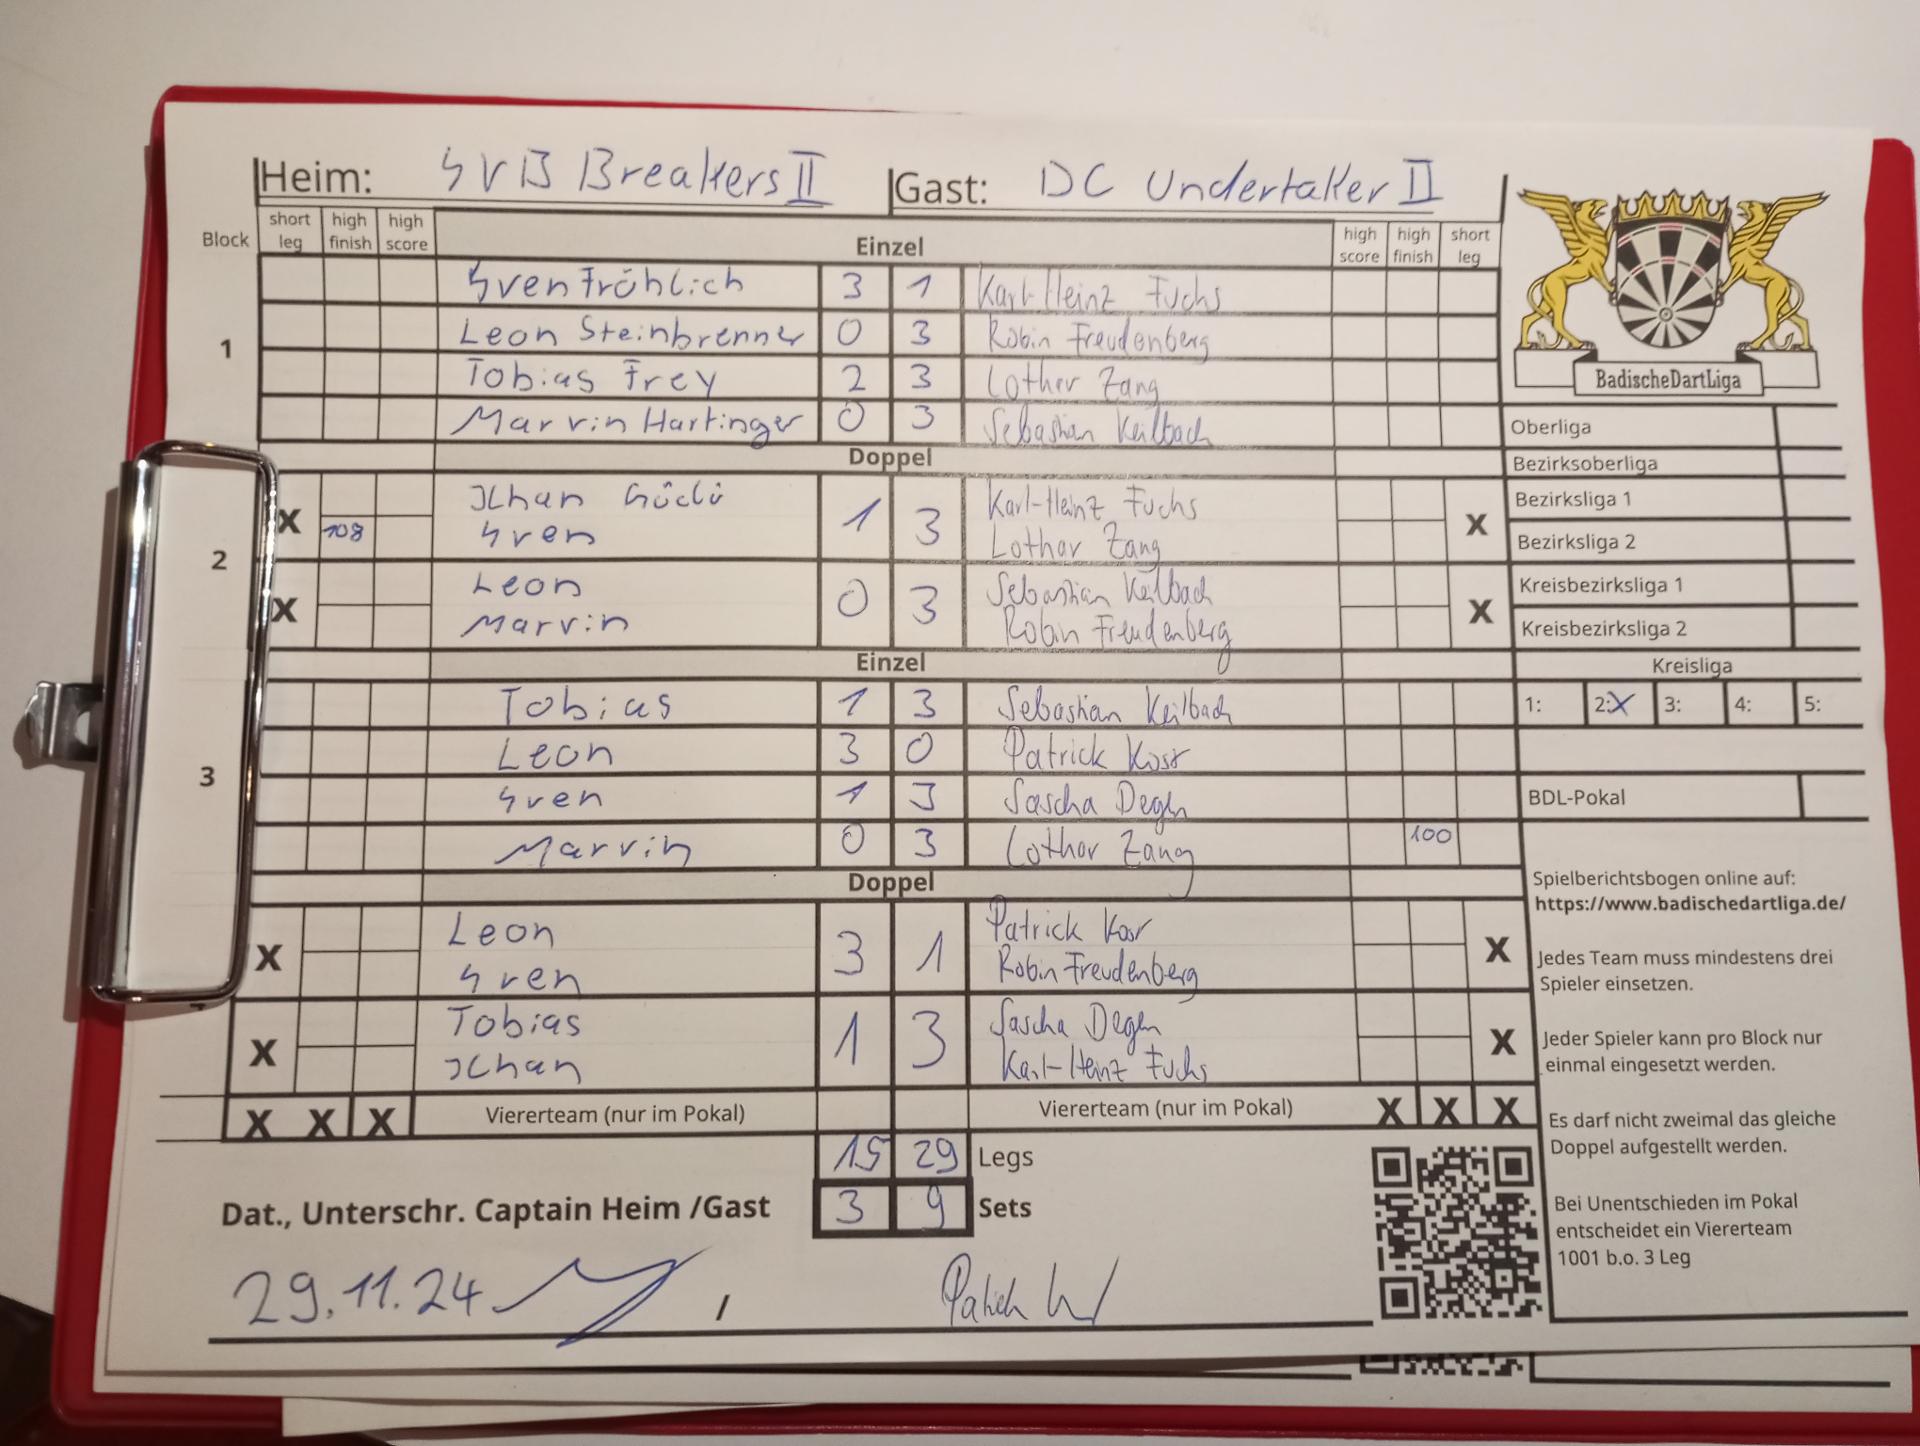 Heim: SVB Breakers II Gast: DC Undertaker II
Block short leg high finish high score Einzel high score high finish short leg
1
Sven Fröhlich 3 1 Karl-Heinz Fuchs
Leon Steinbrenner 0 3 Robin Freudenberg
Tobias Frey 2 3 Lothar Zang
Marvin Hartinger 0 3 Sebastian Keilbach
Doppel
2
X Ilhan 1 3 Karl-Heinz Fuchs X
108 Sven Lothar Zang
X Leon 0 3 Sebastian Keilbach X
Marvin Robin Freudenberg
Einzel
3
Tobias 1 3 Sebastian Keilbach
Leon 3 0 Patrick
Sven 1 3 Sascha Degen
Marvin 0 3 Lothar Zang 100
Doppel
X Leon 3 1 Patrick X
Sven Robin Freudenberg
X Tobias 1 3 Sascha Degen X
Ilhan Karl-Heinz Fuchs
X X X Viererteam (nur im Pokal) Viererteam (nur im Pokal) X X X
15 29 Legs
Dat., Unterschr. Captain Heim /Gast 3 9 Sets
29.11.24 / Patrick
BadischeDartLiga
Oberliga
Bezirksoberliga
Bezirksliga 1
Bezirksliga 2
Kreisbezirksliga 1
Kreisbezirksliga 2
Kreisliga
1: 2:X 3: 4: 5:
BDL-Pokal
Spielberichtsbogen online auf:
https://www.badischedartliga.de/
Jedes Team muss mindestens drei
Spieler einsetzen.
Jeder Spieler kann pro Block nur
einmal eingesetzt werden.
Es darf nicht zweimal das gleiche
Doppel aufgestellt werden.
Bei Unentschieden im Pokal
entscheidet ein Viererteam
1001 b.o. 3 Leg